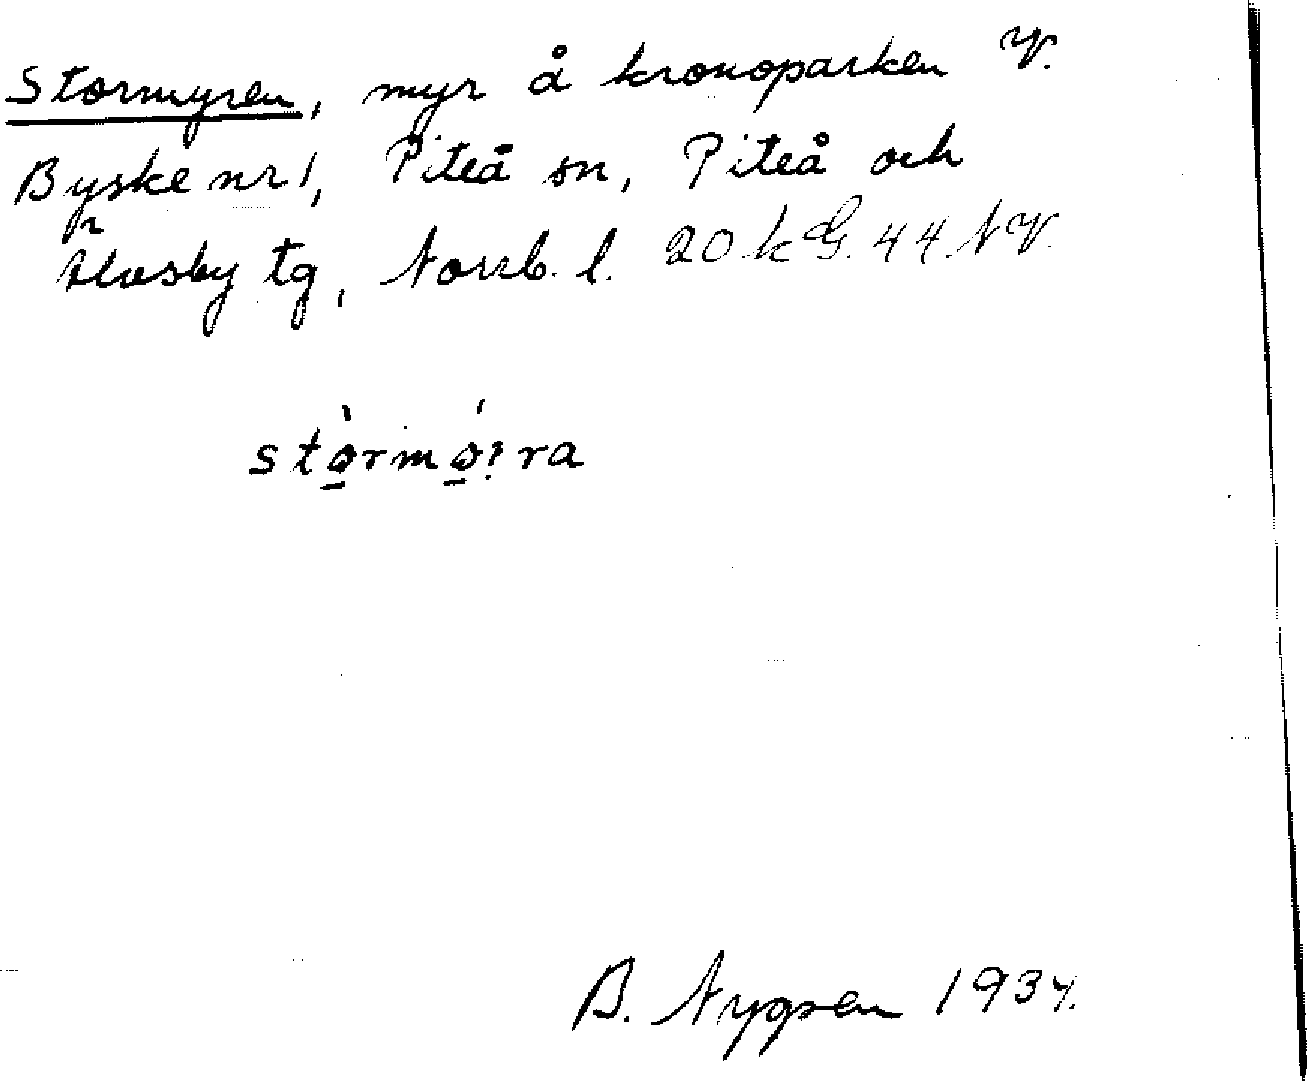 Stormyren, myr å kronoparken V.
Byske nr 1, Piteå sn, Piteå och
Älvsby tg, Norrb. l. 20 k G. 44 NV.
stọ̀rmọ́ira
B. Nygren 1937.